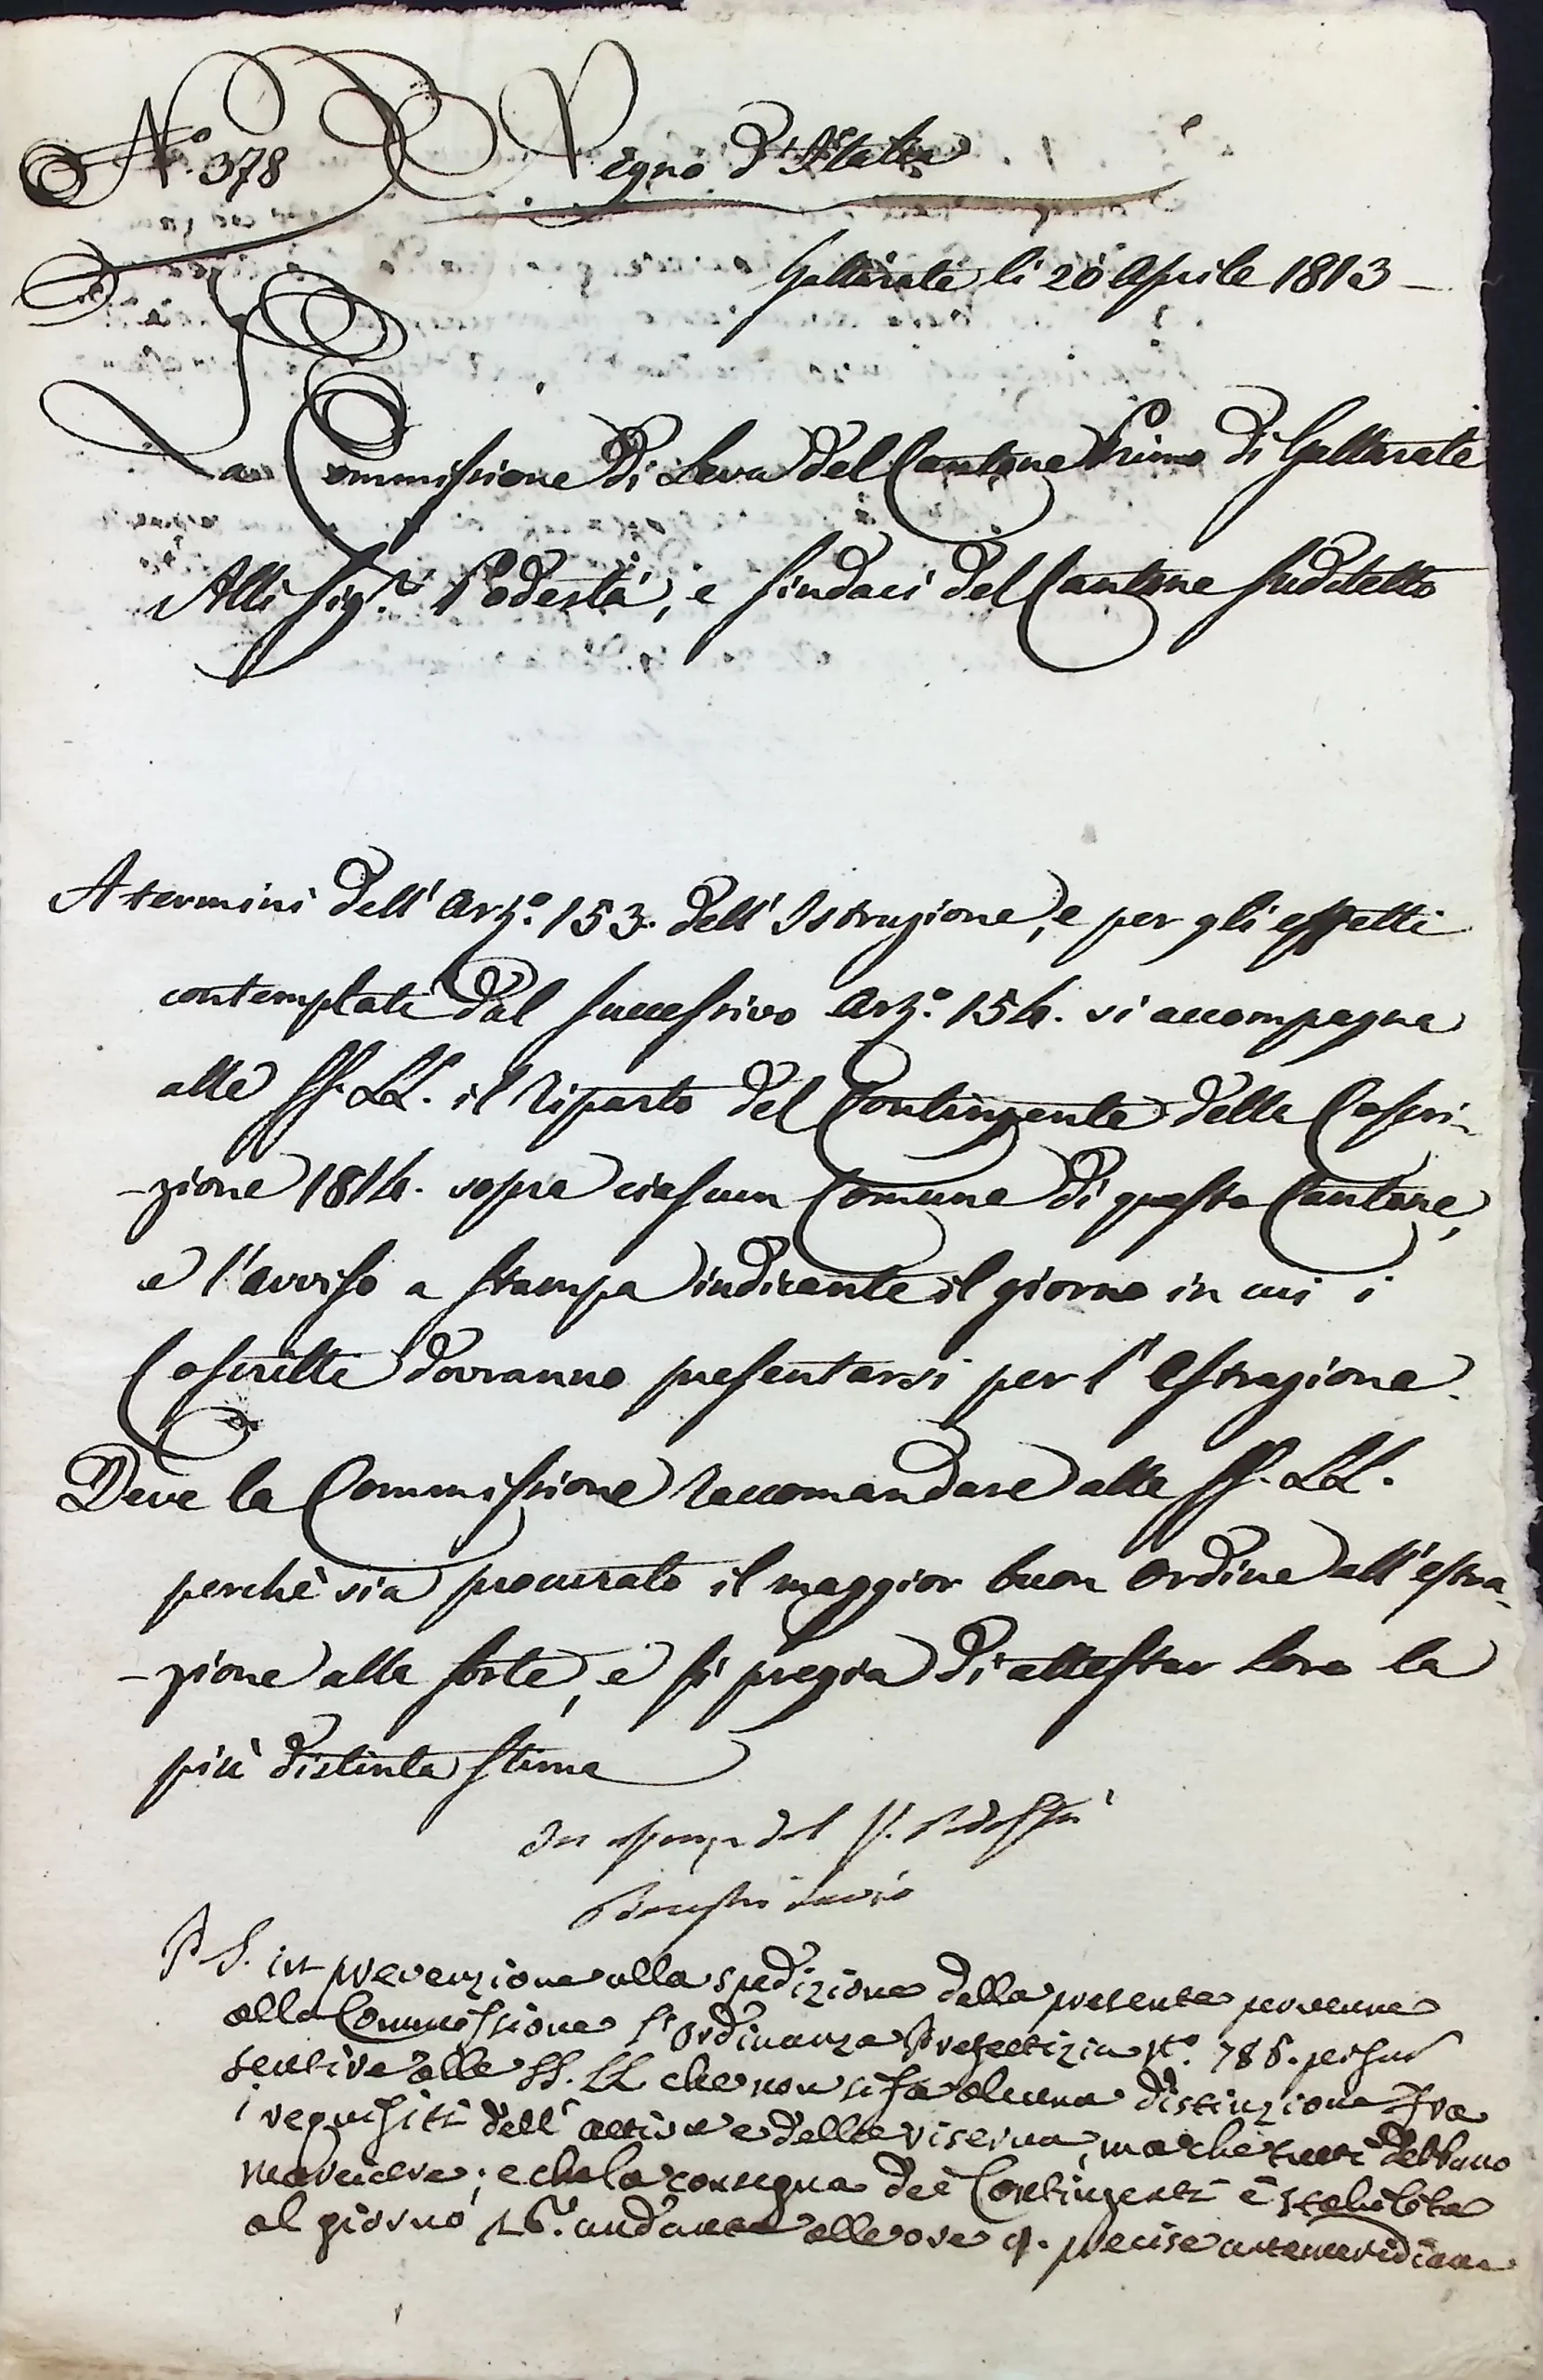 N.° 378 Regno d'Italia
Gallarate li 20 Aprile 1813
La Commissione di Leva del Cantone Primo di Gallarate
Alli Sig.ri Podestà, e Sindaci del Cantone Suddetto
A termini dell'Art.° 153. dell'Istruzione, e per gli effetti
contemplati dal successivo Art.° 154. si accompagna
alle SS. LL. il Riparto del Contingente della Coscri-
-zione 1814. sopra ciascun Comune di questo Cantone,
e l'avviso a stampa indicante il giorno in cui i
Coscritti dovranno presentarsi per l'Estrazione.
Deve la Commissione raccomandare alle SS. LL.
perchè sia procurato il maggior buon ordine all'estra-
-zione alla sorte, e si pregia di attestar loro la
più distinta stima
In assenza del S. Podestà
P.S. in prevenzione alla spedizione della presente pervenne
alla Commissione l'Ordinanza Prefettizia N.° 785. per far
sentire alle SS. LL. che non si fa alcuna distinzione fra
i requisiti dell'attiva e della riserva, ma che tutti debbano
marciare; e che la consegna dei Contingenti è stabilita
al giorno 26. andante alle ore 9. precise antemeridiane